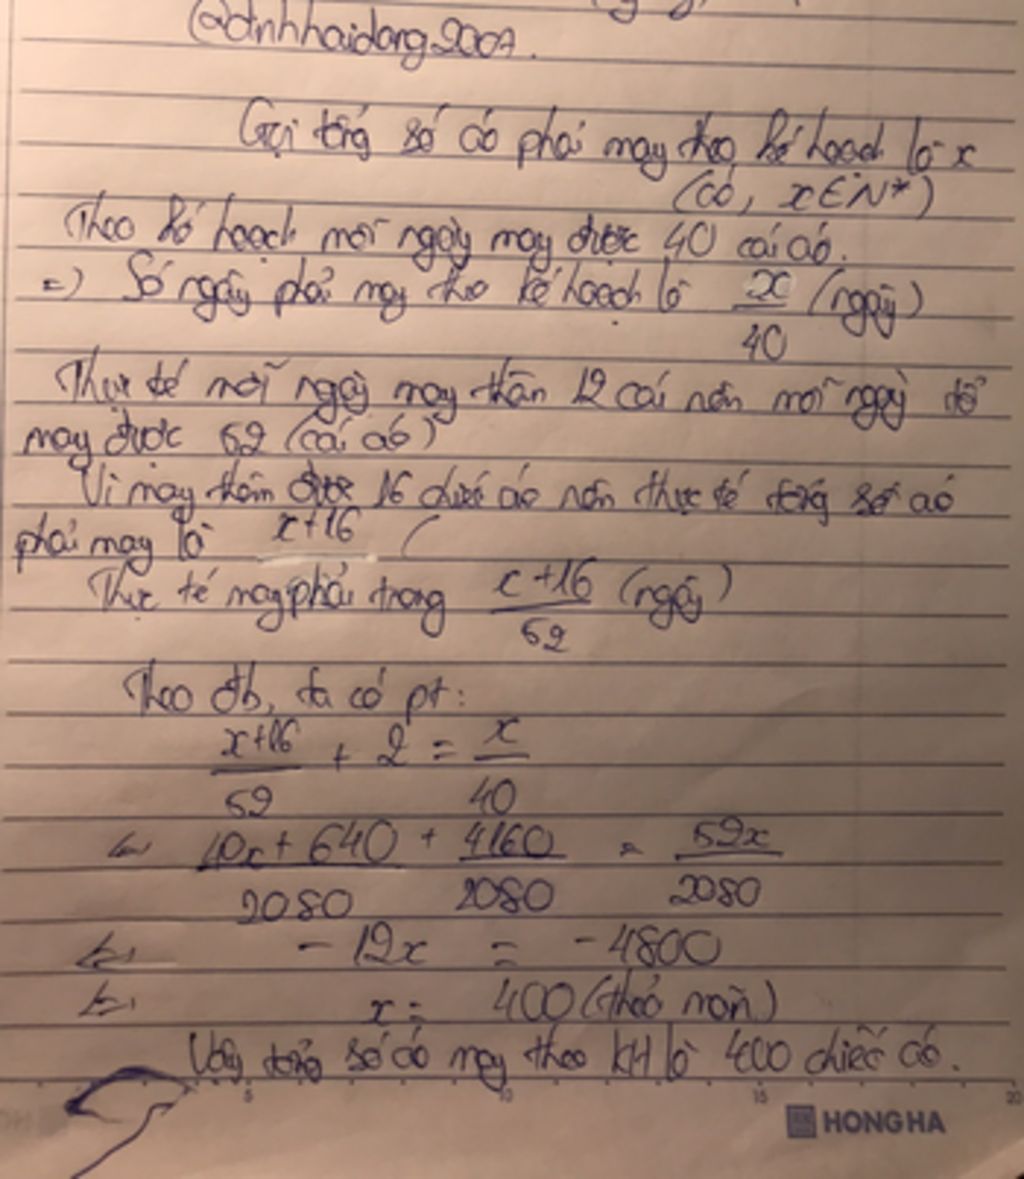 @dnhhaidang2007.
Gọi tổng số áo phải may theo kế hoạch là x
(áo, x∈N*)
Theo kế hoạch mỗi ngày may được 40 cái áo.
=) Số ngày phải may theo kế hoạch là x/40 (ngày)
Thực tế mỗi ngày may thêm 12 cái nên mỗi ngày tổ
may được 52 (cái áo)
Vì may thêm được 16 chiếc áo nên thực tế tổng số áo
phải may là x+16 (
Thực tế may phải trong x+16/52 (ngày)
Theo đb, ta có pt:
x+16/52 + 2 = x/40
40x+640/2080 + 4160/2080 = 52x/2080
-12x = -4800
x = 400 (thỏa mãn)
Vậy tổng số áo may theo KH là 400 chiếc áo.
5 10 15 20
HONG HA